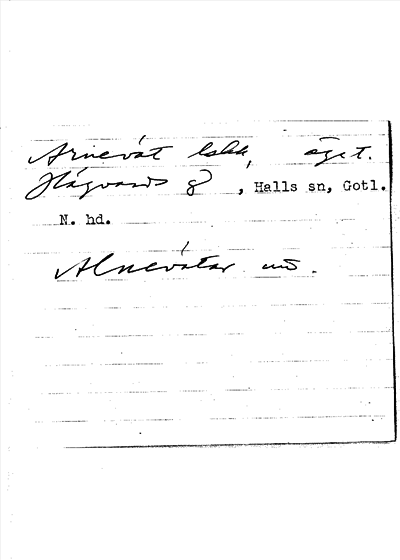 Arnevát lskk, äget.
Hägvards 8, Halls sn, Gotl.
N. hd.
Alnevátar